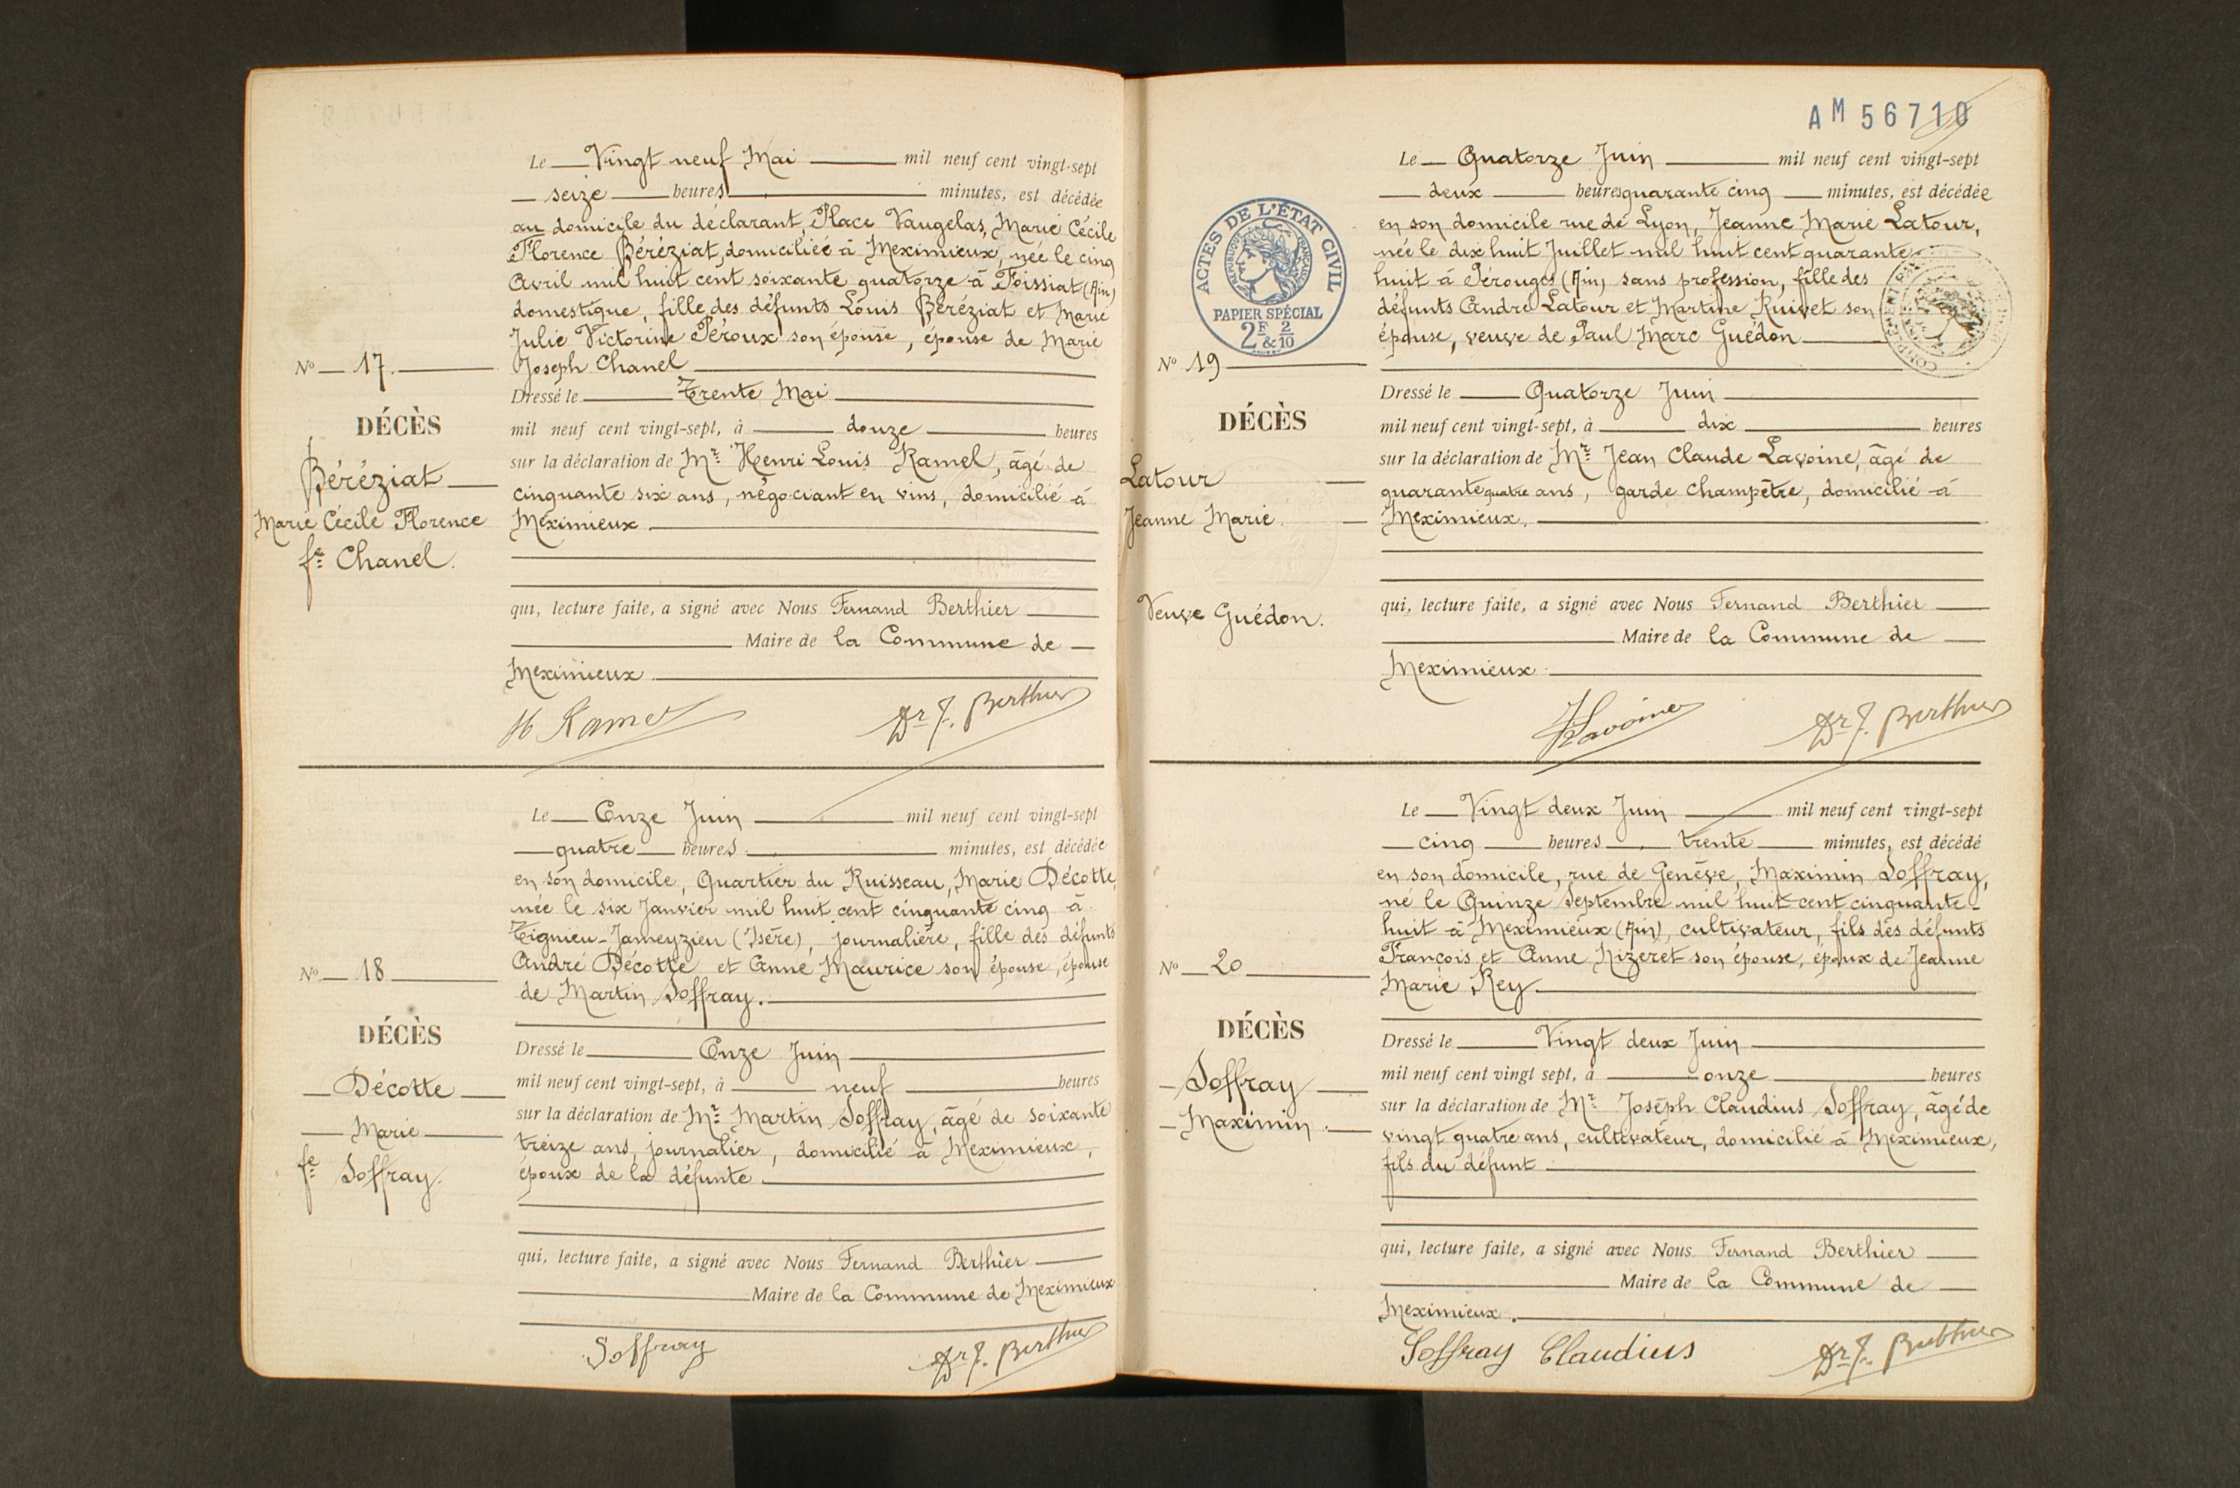 Le Vingt neuf Mai mil neuf cent vingt-sept
seize heures minutes, est décédée
au domicile du déclarant, Place Vaugelas, Marie Cécile
Florence Béréziat, domiciliée à Meximieux, née le cinq
Avril mil huit cent soixante quatorze à Foissiat (Ain)
domestique, fille des défunts Louis Béréziat et Marie
Julie Victorine Péroux son épouse, épouse de Marie
Joseph Chanel
No 17.
DÉCÈS
Béréziat
Marie Cécile Florence
fe Chanel.
Dressé le Trente Mai
mil neuf cent vingt-sept, à douze heures
sur la déclaration de Mr Henri Louis Ramel, âgé de
cinquante six ans, négociant en vins, domicilié à
Meximieux
qui, lecture faite, a signé avec Nous Fernand Berthier
Maire de la Commune de
Meximieux
H Ramel Dr F. Berthier
Le Onze Juin mil neuf cent vingt-sept
quatre heures minutes, est décédée
en son domicile, Quartier du Ruisseau, Marie Décotte,
née le six Janvier mil huit cent cinquante cinq à
Tignieu-Jameyzieu (Isère), journalière, fille des défunts
André Décotte et Anne Maurice son épouse, épouse
de Martin Soffray.
No 18
DÉCÈS
Décotte
Marie
fe Soffray.
Dressé le Onze Juin
mil neuf cent vingt-sept, à neuf heures
sur la déclaration de Mr Martin Soffray, âgé de soixante
treize ans, journalier, domicilié à Meximieux,
époux de la défunte
qui, lecture faite, a signé avec Nous Fernand Berthier
Maire de la Commune de Meximieux
Soffray Dr F. Berthier
AM 56710
Le Quatorze Juin mil neuf cent vingt-sept
deux heures quarante cinq minutes, est décédée
en son domicile rue de Lyon, Jeanne Marie Latour,
née le dix huit Juillet mil huit cent quarante
huit à Pérouges (Ain) sans profession, fille des
défunts André Latour et Martine Ruivet son
épouse, veuve de Paul Marc Guédon
ACTES DE L'ÉTAT CIVIL
RÉPUBLIQUE FRANÇAISE
PAPIER SPÉCIAL
2F & 2/10
No 19
DÉCÈS
Latour
Jeanne Marie.
Veuve Guédon.
Dressé le Quatorze Juin
mil neuf cent vingt-sept, à dix heures
sur la déclaration de Mr Jean Claude Lavoine, âgé de
quarante quatre ans, garde champêtre, domicilié à
Meximieux.
qui, lecture faite, a signé avec Nous Fernand Berthier
Maire de la Commune de
Meximieux.
Lavoine Dr F. Berthier
Le Vingt deux Juin mil neuf cent vingt-sept
cinq heures trente minutes, est décédé
en son domicile, rue de Genève, Maximin Soffray,
né le Quinze Septembre mil huit cent cinquante-
huit à Meximieux (Ain), cultivateur, fils des défunts
François et Anne Nizeret son épouse, époux de Jeanne
Marie Rey
No 20
DÉCÈS
Soffray
Maximin.
Dressé le Vingt deux Juin
mil neuf cent vingt sept, à onze heures
sur la déclaration de Mr Joseph Claudius Soffray, âgé de
vingt quatre ans, cultivateur, domicilié à Meximieux,
fils du défunt
qui, lecture faite, a signé avec Nous Fernand Berthier
Maire de la Commune de
Meximieux.
Soffray Claudius Dr F. Berthier